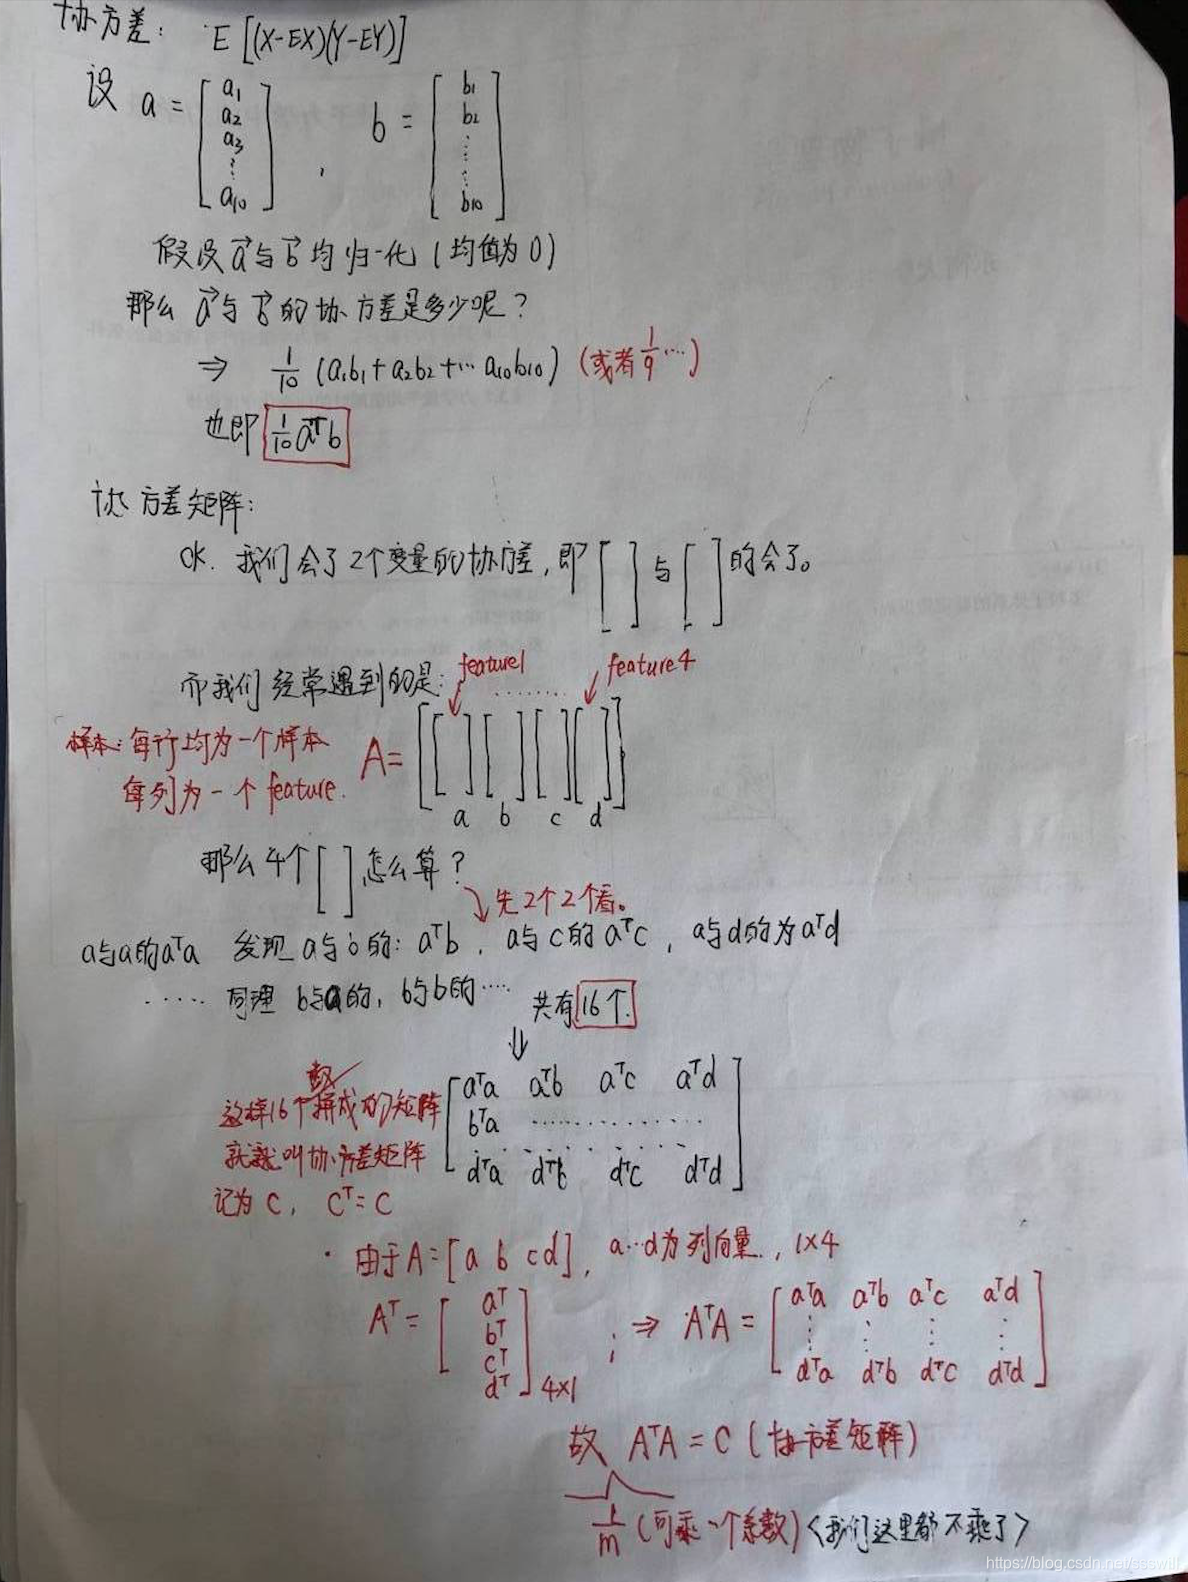 协方差: E[(X-EX)(Y-EY)]
设 a = [a1 a2 a3 ⋮ a10] , b = [b1 b2 ⋮ b10]
假设 a⃗与b⃗ 均归一化 (均值为 0)
那么 a⃗与b⃗ 的协方差是多少呢?
⇒ 1/10 (a1b1+a2b2+…a10b10) (或者1/9…)
也即 1/10 aᵀb
协方差矩阵:
OK. 我们会了2个变量的协方差,即 [ ] 与 [ ] 的会了。
feature1 ........ feature4
而我们经常遇到的是:
样本:每行均为一个样本
每列为一个 feature.
A = [[ ] [ ] [ ] [ ]]
a b c d
那么4个[ ]怎么算?
先2个2个看。
a与a的aᵀa 发现 a与b的: aᵀb , a与c的 aᵀc , a与d的为aᵀd
..... 同理 b与a的, b与b的…. 共有16个.
⇓
这样16个数拼成的矩阵
就叫协方差矩阵
记为 C, Cᵀ=C
aᵀa aᵀb aᵀc aᵀd
bᵀa ................
dᵀa dᵀb dᵀc dᵀd
· 由于A=[a b c d], a…d为列向量., 1×4
Aᵀ = [aᵀ bᵀ cᵀ dᵀ] 4×1 ; ⇒ AᵀA =
aᵀa aᵀb aᵀc aᵀd
⋮ ⋮ ⋮ ⋮
dᵀa dᵀb dᵀc dᵀd
故 AᵀA = C (协方差矩阵)
1/m (可乘一个系数) <我们这里都不乘了>
https://blog.csdn.net/ssswill